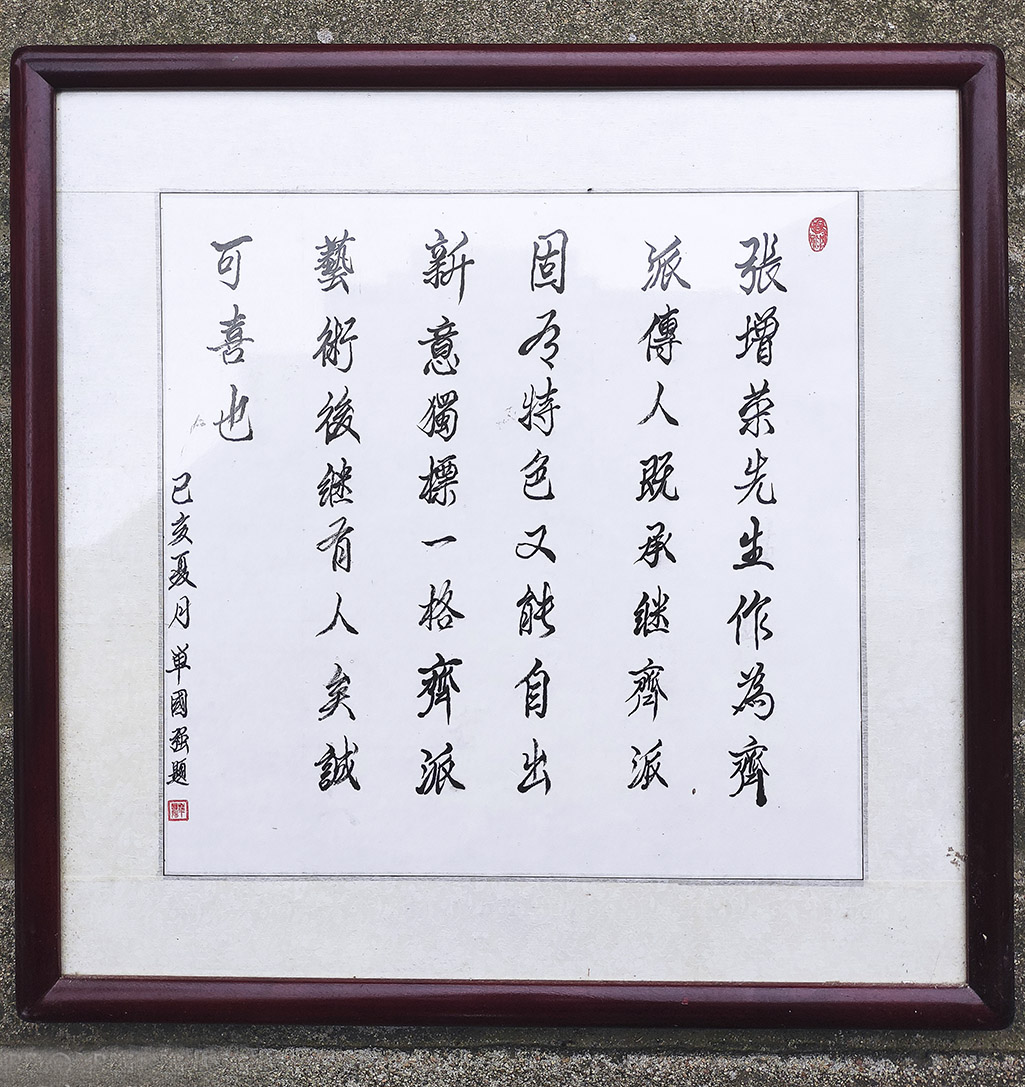 張增荣先生作為齊
派傳人既承继齊派
固有特色又能自出
新意獨標一格齊派
藝術後继有人矣誠
可喜也
己亥夏月單國强題